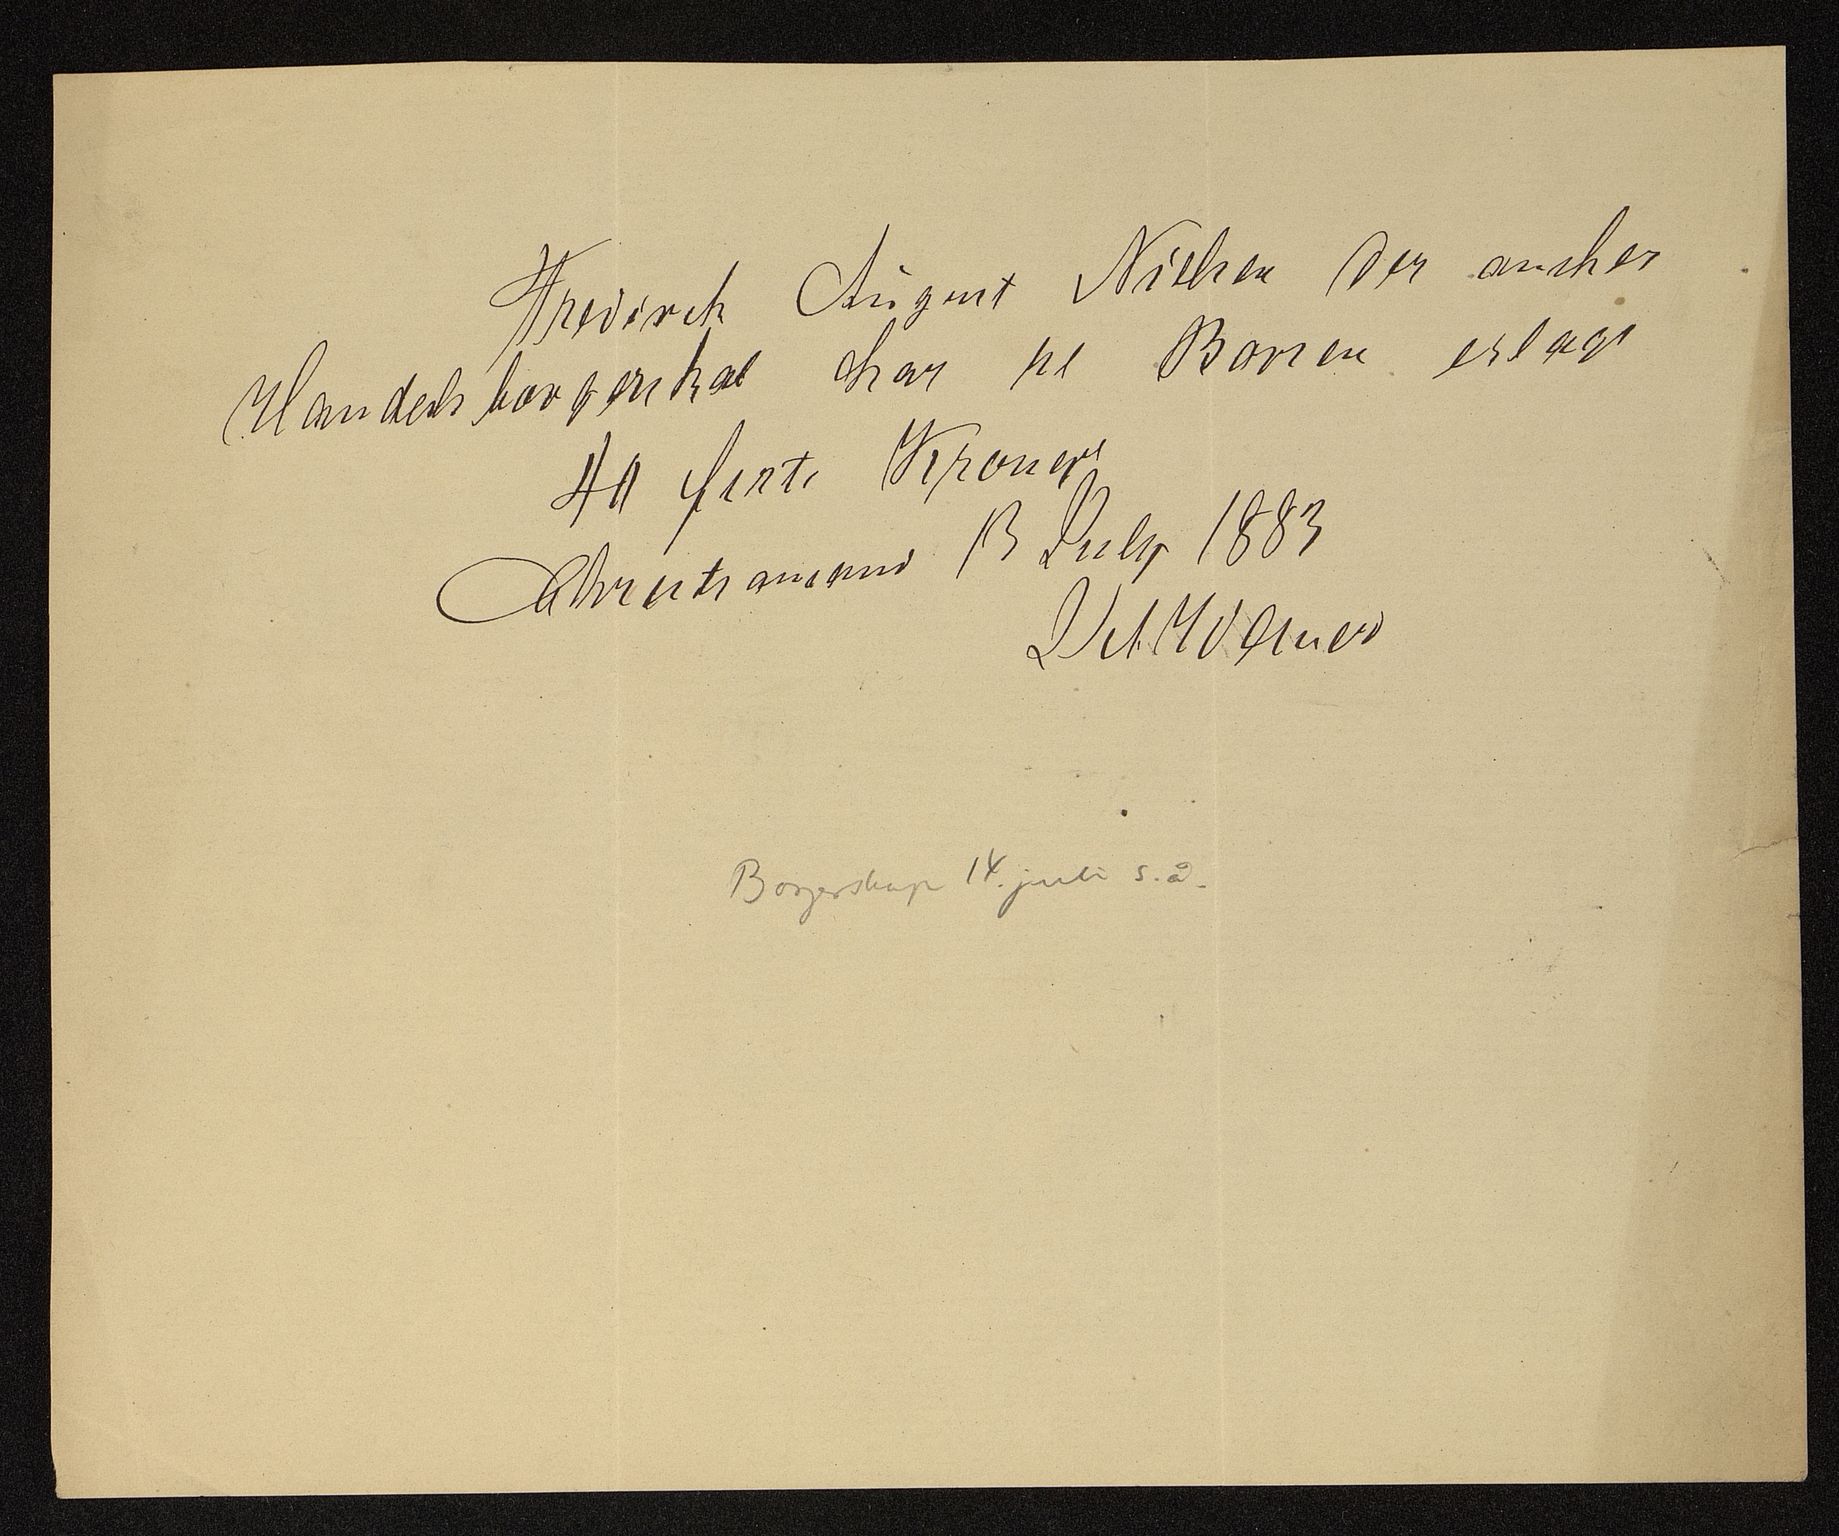 Fredirck August Nielsen der ønsker
Handelsborgerskab har til Børsen erlagt
40 firti Kroner
Christiansand 13 July 1883
Borgerskap 14. juli s.å.